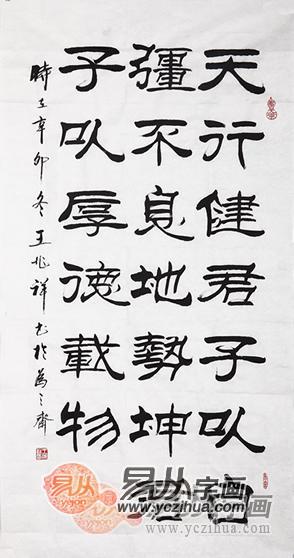 天行健君子以自
彊不息地勢坤君
子以厚德載物
時在辛卯冬王兆祥书於之齋
易从字画
www.yczihua.com